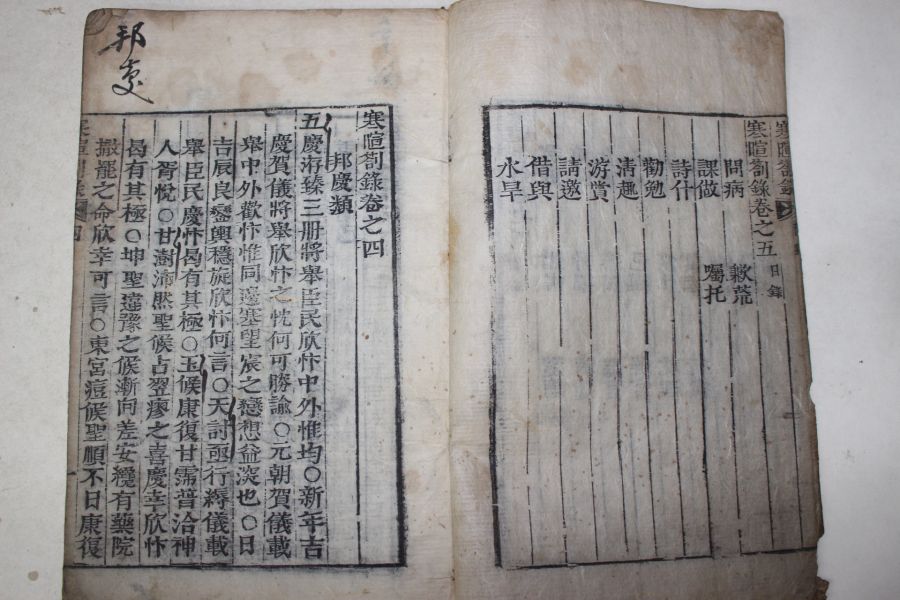 寒暄劄錄卷之五 目錄
問病 歉荒
課做 囑托
詩什
勸勉
清趣
游賞
請邀
借與
水旱
邦慶
寒暄劄錄卷之四
邦慶類
五慶洊臻三冊將舉臣民欣忭中外惟均○新年吉
慶賀儀將舉欣忭之忱何可勝諭○元朝賀儀載
舉中外歡忭惟同邊塞望宸之戀想益深也○日
吉辰良鑾輿穩旋欣忭何言○天討亟行縟儀載
舉臣民慶忭曷有其極○玉候康復甘霈普洽神
人胥悅○甘澍沛然聖候占翌瘳之喜慶幸欣忭
曷有其極○坤聖違豫之候漸向差安纔有藥院
撤罷之命欣幸可言○東宮痘候聖順不日康復